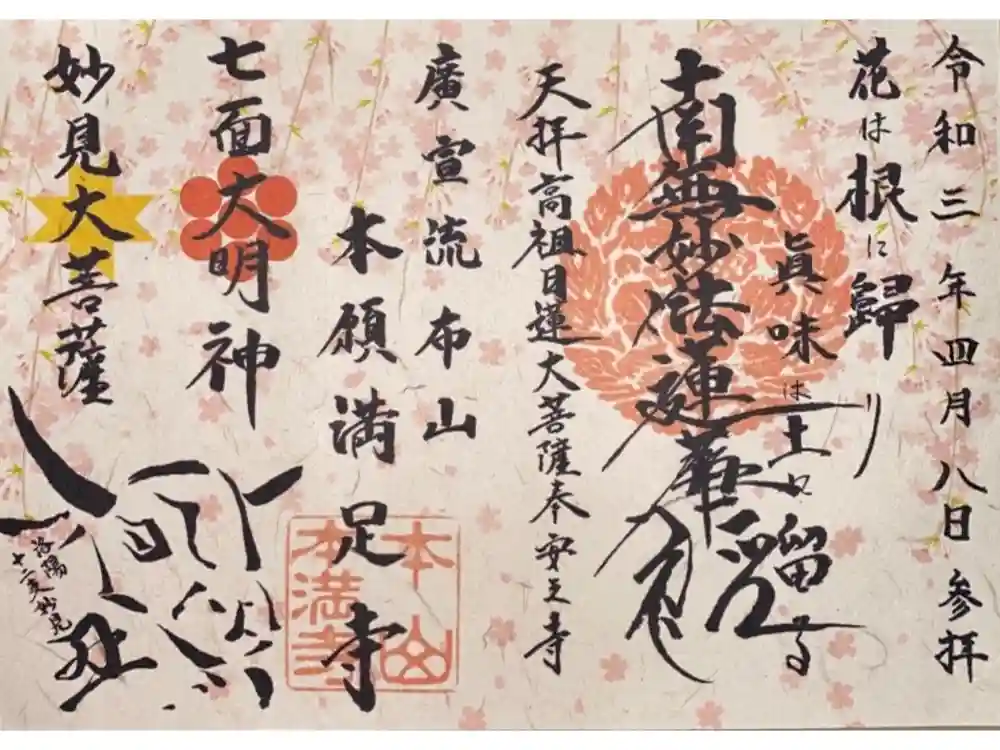 令和三年四月八日参拝
花は根に歸り
眞味は土に留る
南無妙法蓮華経
天拝高祖日蓮大菩薩奉安之寺
廣宣流布山
本願満足寺
本山
本満寺
七面大明神
妙見大菩薩
洛陽
十二支妙見